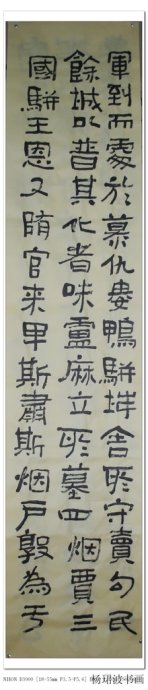 軍到而處於慕仇婁鴨騈垟舍所守賣句民
餘城以普其化者味盧麻立所墓四烟賈三
國騈王恩又賄官来甲斯肅斯烟户敦為亏
NIKON D3000 [18-55mm F3.5-F5.6]
杨珺波书画